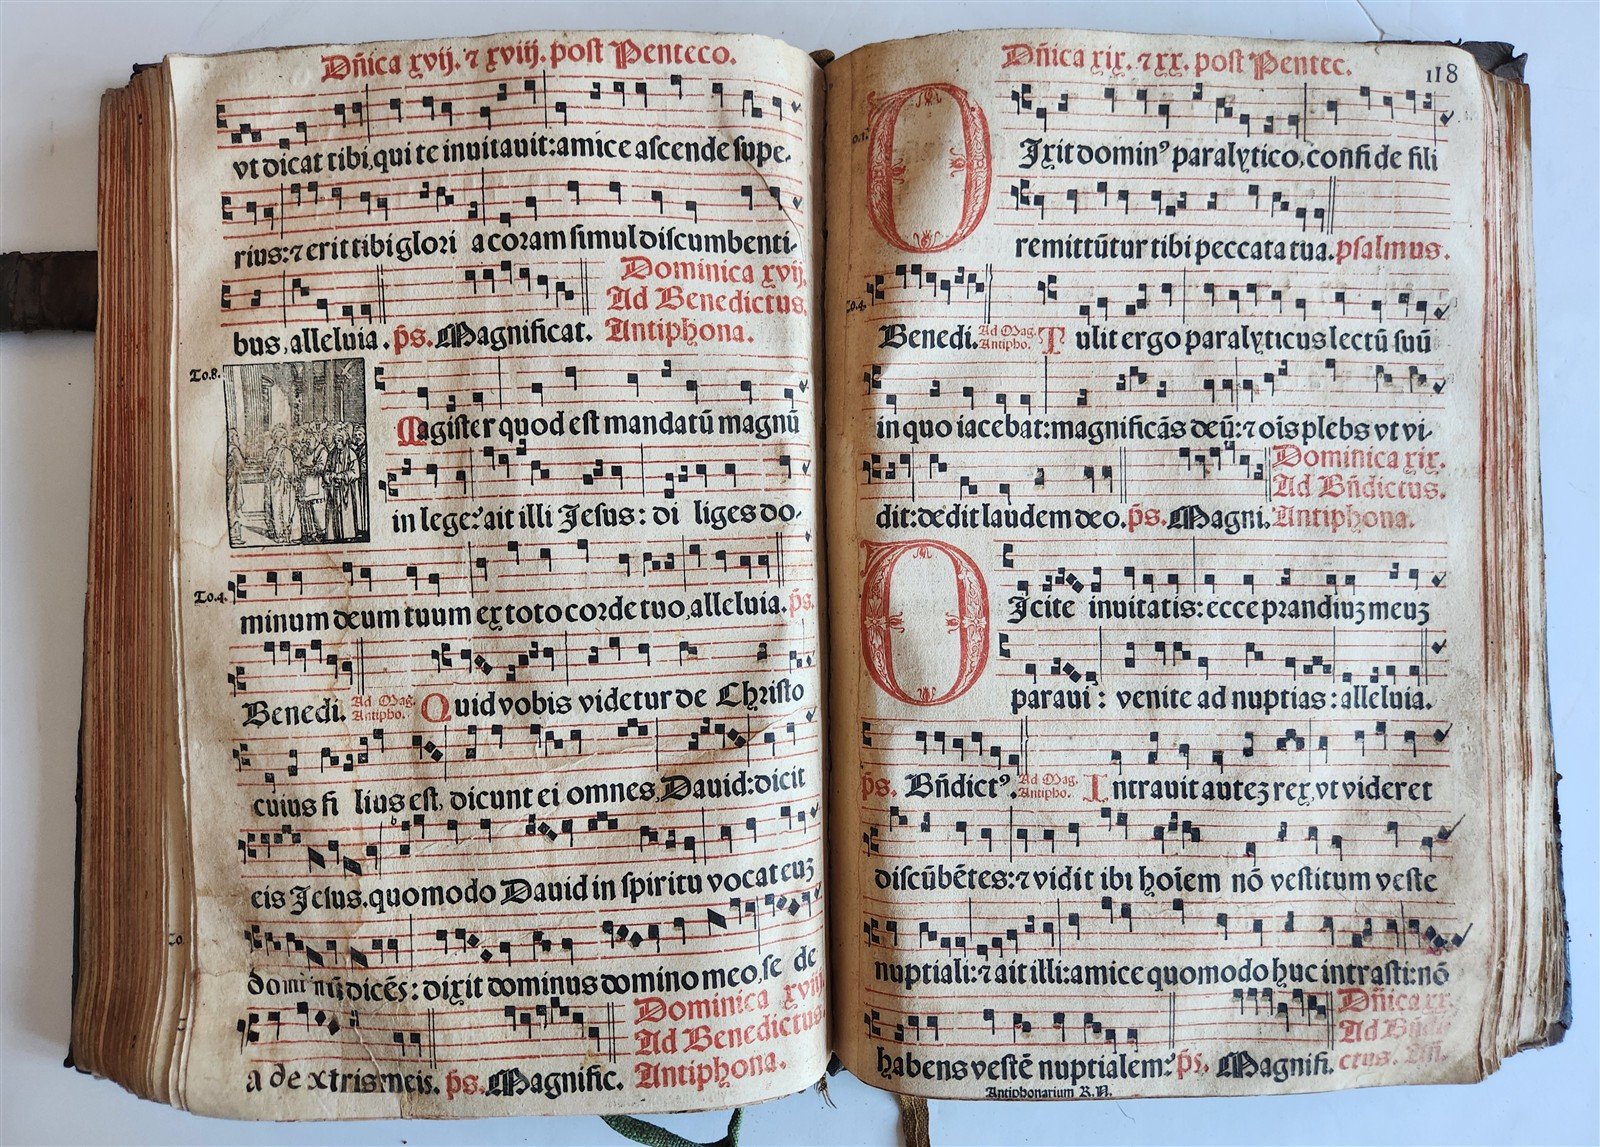 Dñica xvij. ⁊ xviij. post Penteco.
vt dicat tibi, qui te inuitauit: amice ascende supe-
rius: ⁊ erit tibi glori a coram simul discumbenti-
bus, alleluia. p̄s. Magnificat.
Dominica xvij.
Ad Benedictus.
Antiphona.
To.8.
Magister quod est mandatū magnū
in lege? ait illi Jesus: di liges do-
To.4.
minum deum tuum ex toto corde tuo, alleluia. p̄s.
Benedi. Ad Mag. Antipho. Quid vobis videtur de Christo
cuius fi lius est, dicunt ei omnes, Dauid: dicit
eis Jesus. quomodo Dauid in spiritu vocat euꝫ
To
domi nū dicēs: dixit dominus domino meo, se de
a dextris meis. p̄s. Magnific.
Dominica xviij
Ad Benedictus
Antiphona.
Dñica xix. ⁊ xx. post Pentec.
118
o.1.
DJxit dominꝰ paralytico, confide fili
remittūtur tibi peccata tua. psalmus.
To.4.
Benedi. Ad Mag. Antipho. Tulit ergo paralyticus lectū suū
in quo iacebat: magnificās deū: ⁊ oīs plebs vt vi-
dit: dedit laudem deo. p̄s. Magni.
Dominica xix.
Ad Bñdictus.
Antiphona.
DJcite inuitatis: ecce prandiuꝫ meuꝫ
paraui: venite ad nuptias: alleluia.
p̄s. Bñdictꝰ. Ad Mag. Antipho. Intrauit auteꝫ rex, vt videret
discūbētes: ⁊ vidit ibi hoīem nō vestitum veste
nuptiali: ⁊ ait illi: amice quomodo huc intrasti: nō
habens vestē nuptialem? p̄s. Magnifi.
Dñica xx.
Ad Bñdi
ctus. Añ.
Antiphonarium R.N.